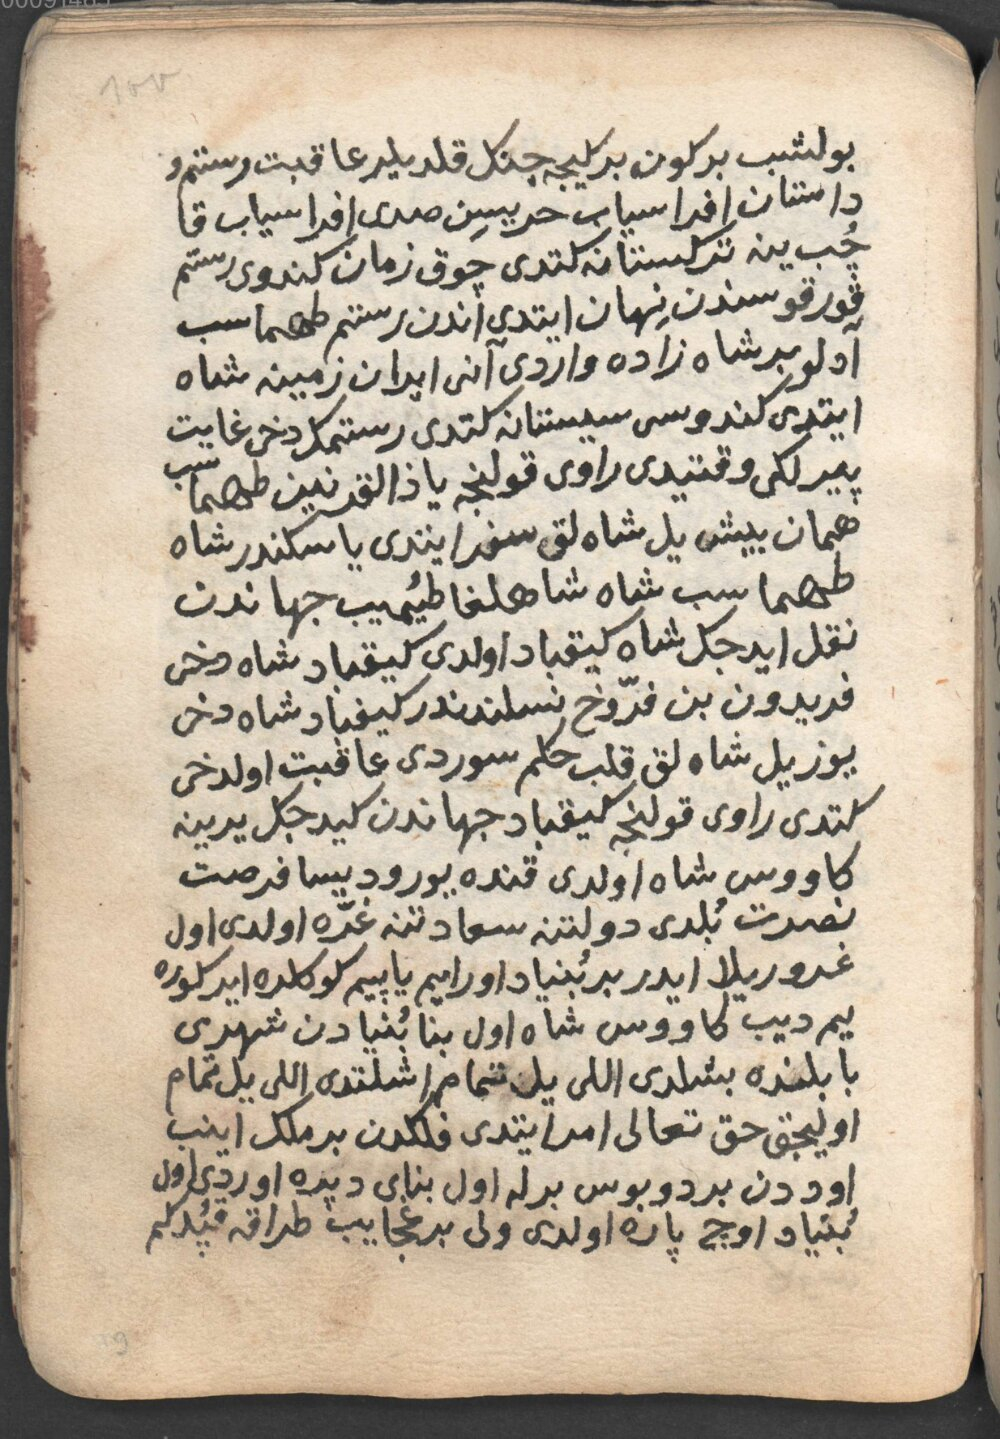 ١٥٧
بولشب بر كون بر كيجه جنك قلديلر عاقبت رستم و
داستان افراسياب حربيسن صدى افراسياب قا
چُب ينه تركستانه كتدى چوق زمان كندوى رستم
قورقوسندن نهان ايتدى اندن رستم طهماسب
آدلو بر شاه زاده واردى آنى ايران زمينه شاه
ايتدى كندوسى سيستانه كتدى رستمك دخى غايت
پيرلكى وقتيدى راوى قولنجه يا ذالقرنين طهماسب
همان بيش يل شاه لق سفر ايتدى يا سكندر شاه
طهماسب شاه شاهلغا طيُميب جهاندن
نقل ايدجك شاه كيقباد اولدى كيقباد شاه دخى
فريدون بن فرّوخ نسلندندر كيقباد شاه دخى
يوز يل شاه لق قلب حكم سوردى عاقبت اولدخى
كتدى راوى قولنجه كيقباد جهاندن كيدجك يرينه
كاووس شاه اولدى قنده يوروديسا فرصت
نصرت بُلدى دولتنه سعادتنه غرّه اولدى اول
غروريلا ايدر بر بُنياد اورايم ياپيم كوكلره ايركوره
يم ديب كاووس شاه اول بنا بُنيادن شهرى
بابلنده بشلدى اللى يل تمام اشلتدى اللى يل تمام
اوليجق حق تعالى امر ايتدى فلكدن بر ملك اينب
اوددن بر دوبوس برله اول بناى دپره اوردى اول
بُنياد اوچ پاره اولدى ولى بر عجايب طراقه قپُدكم